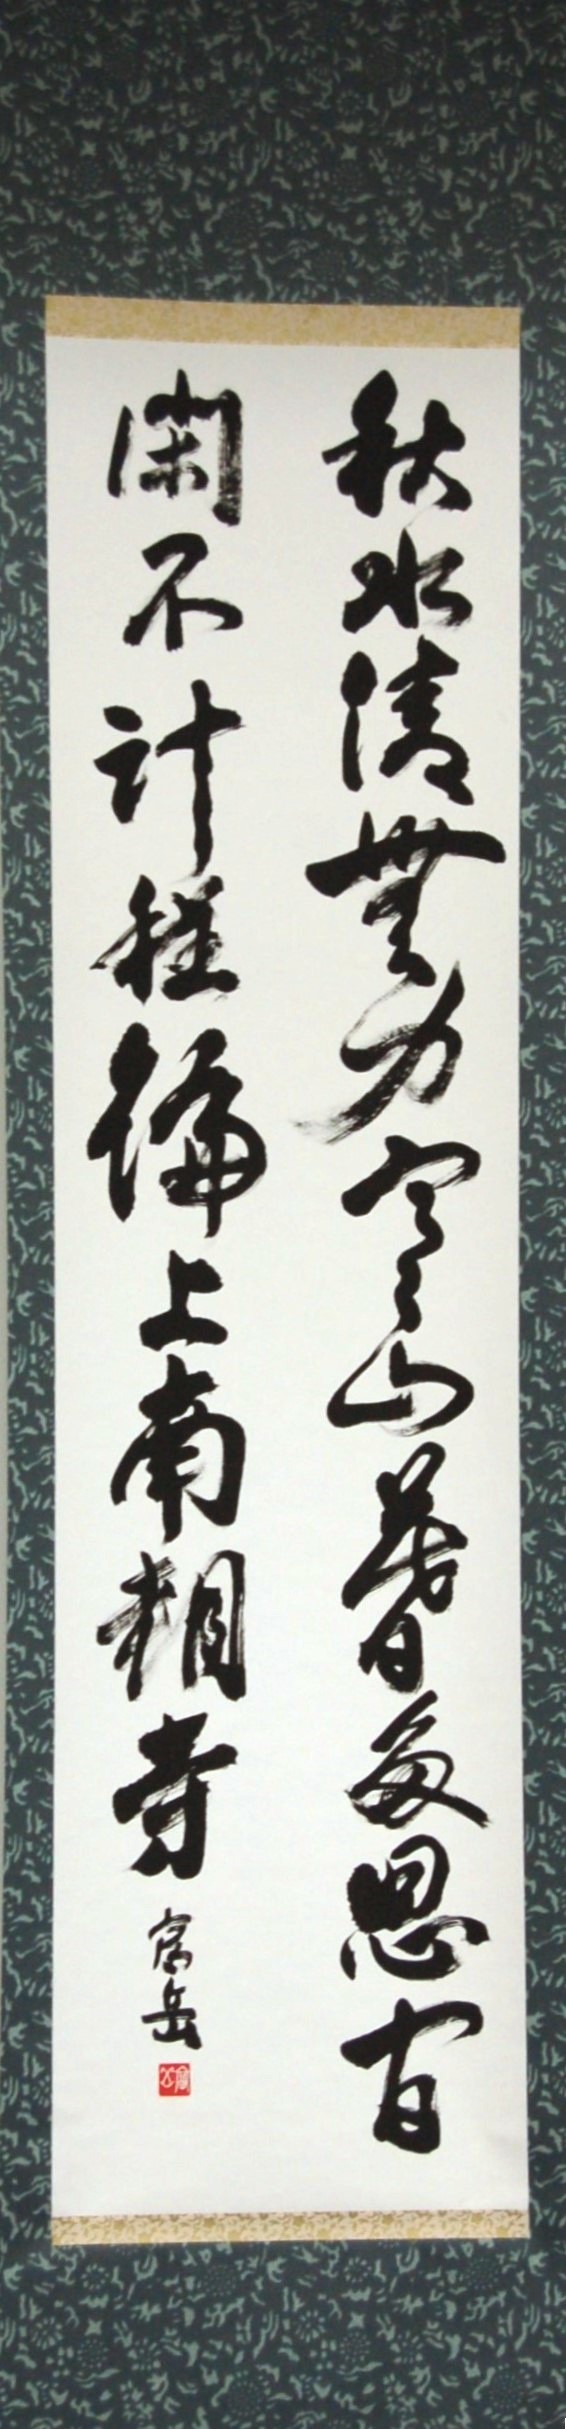 秋水清無力寒山暮多思官
閑不計程徧上南朝寺
富岳